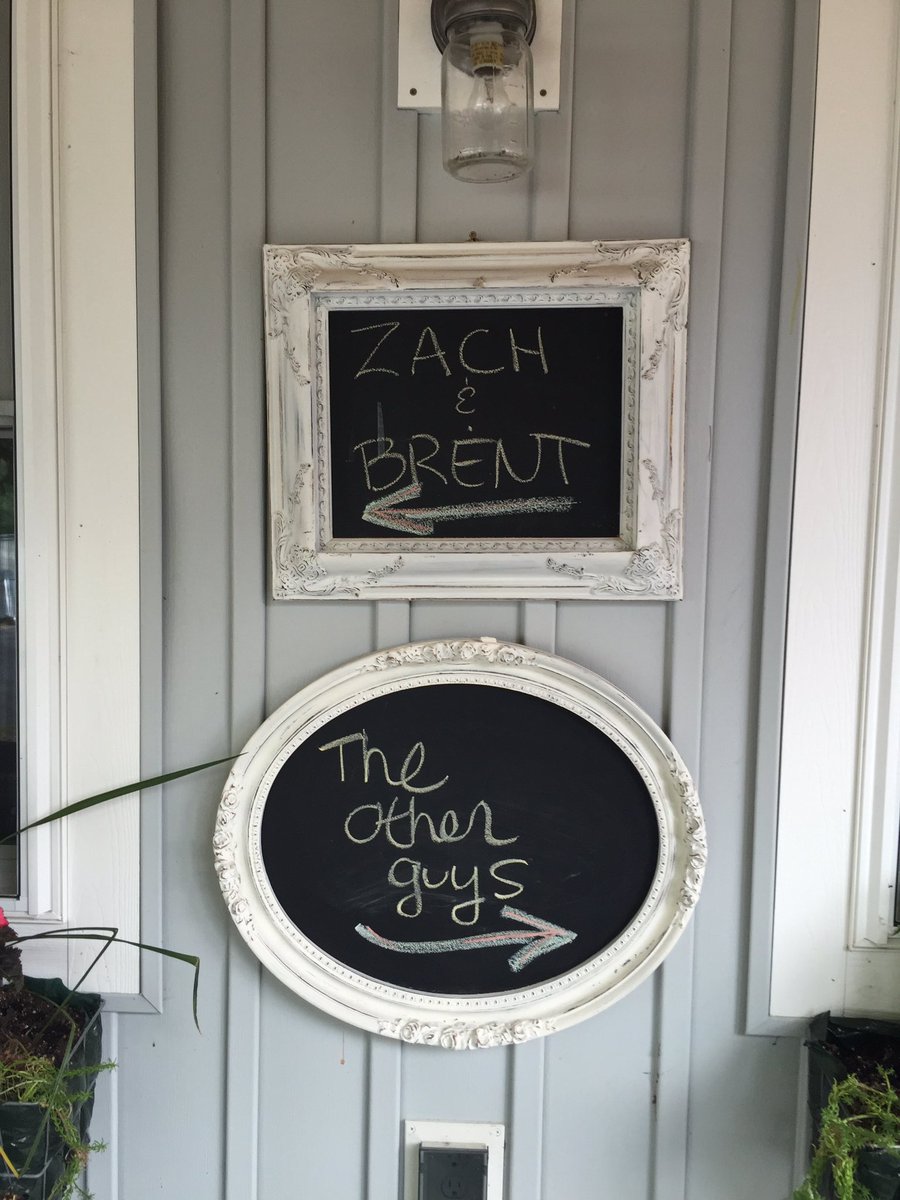 ZACH
&
BRENT
The
other
guys